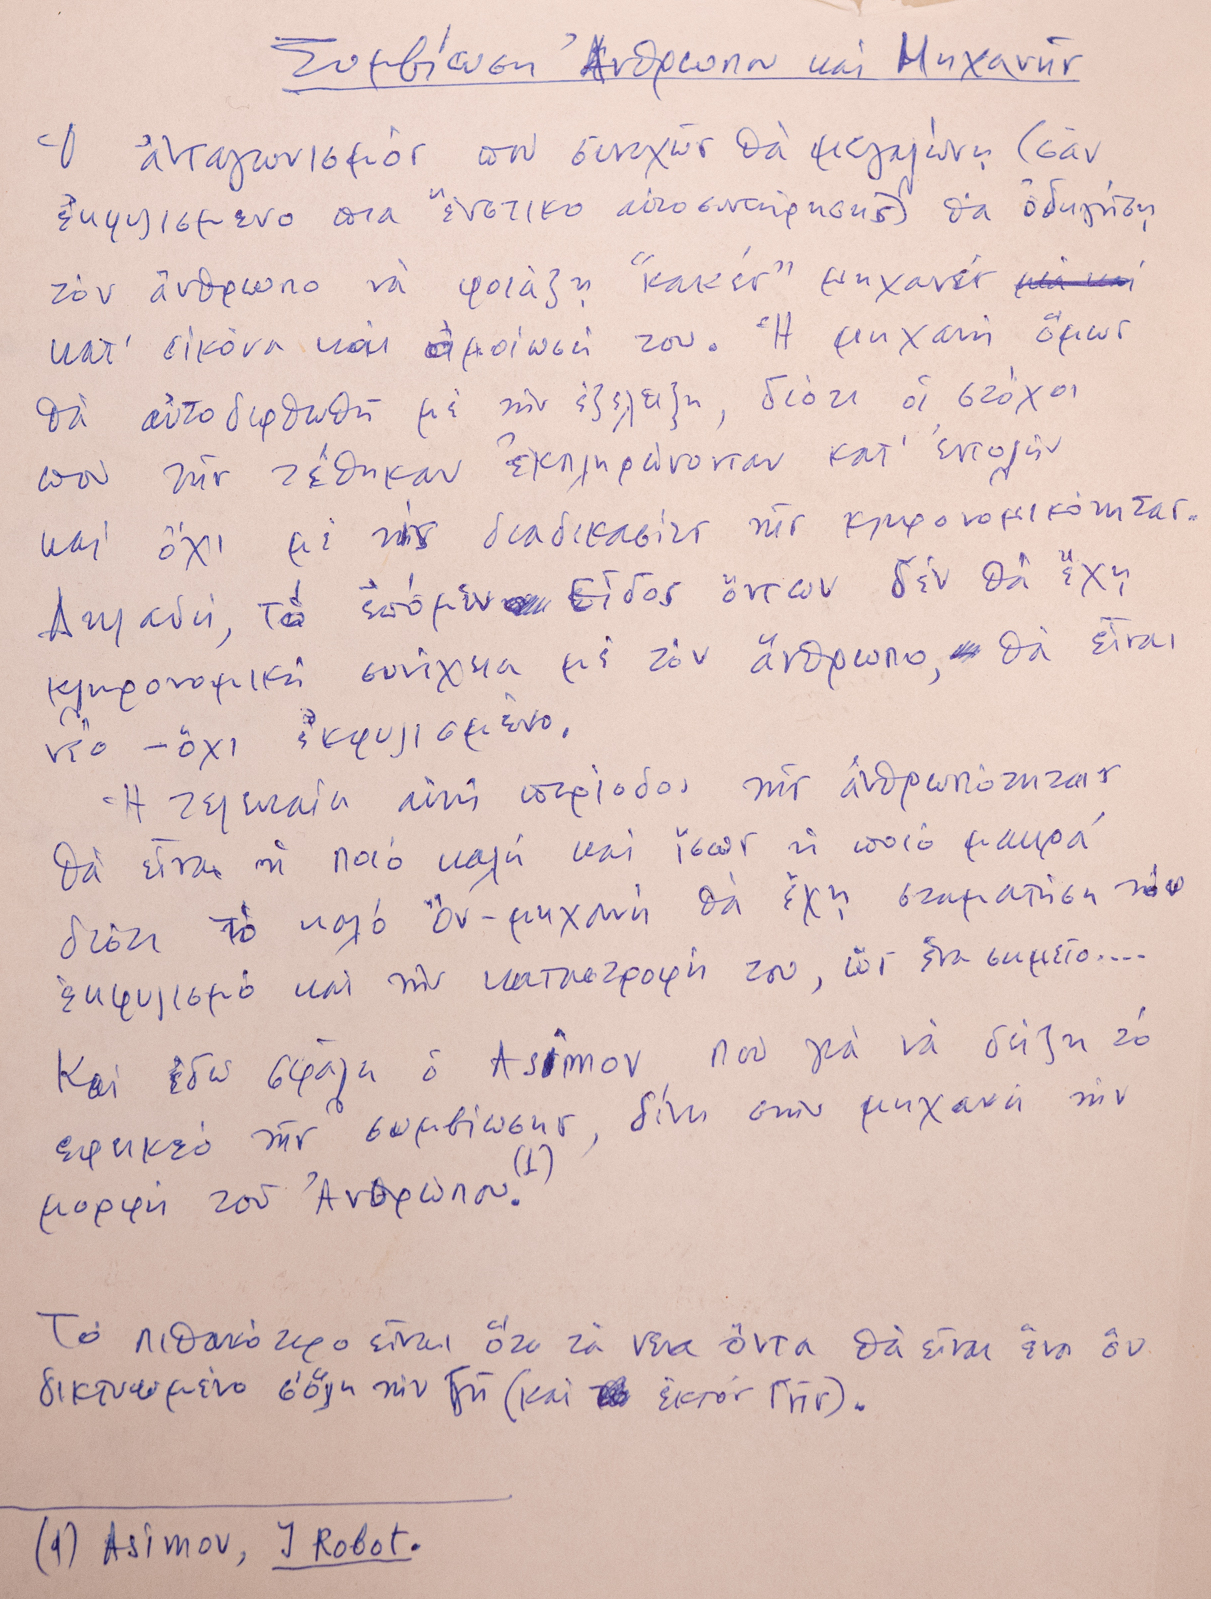 Συμβίωση Ἀνθρώπου καὶ Μηχανῆς
Ὁ ἀνταγωνισμὸς ποὺ συνεχῶς θὰ μεγαλώνῃ (σὰν
ἐκφυλισμένο πιὰ ἔνστικο αὐτοσυντήρησης) θὰ ὁδηγήσῃ
τὸν ἄνθρωπο νὰ φτιάξῃ "κακές" μηχανὲς
κατ' εἰκόνα καὶ ὁμοίωσή του. Ἡ μηχανὴ ὅμως
θὰ αὐτοδιορθωθῆ μὲ τὴν ἐξέλειξη, διότι οἱ στόχοι
ποὺ τῆς τέθηκαν ἐκπληρώνονταν κατ' ἐντολὴν
καὶ ὄχι μὲ τὶς διαδικασίες τῆς κληρονομικότητας.
Δηλαδή, τὸ ἑπόμενο εἶδος ὄντων δὲν θὰ ἔχῃ
κληρονομικὴ συνέχεια μὲ τὸν ἄνθρωπο, θὰ εἶναι
νέο - ὄχι ἐκφυλισμένο.
Ἡ τελευταία αὐτὴ περίοδος τῆς ἀνθρωπότητας
θὰ εἶναι ἡ ποιό καλή καὶ ἴσως ἡ ποιό μακρά
διότι τὸ καλό Ὄν-μηχανὴ θὰ ἔχῃ σταματήση τὸν
ἐκφυλισμό καὶ τὴν καταστροφή του, ὣς ἕνα σημεῖο....
Καὶ ἐδῶ σφάλει ὁ Asimov ποὺ γιὰ νὰ δείξη τὸ
εφικτό τῆς συμβίωσης, δίνει στὴν μηχανὴ τὴν
μορφή τοῦ Ἀνθρώπου.(1)
Τὸ πιθανότερο εἶναι ὅτι τὰ νέα ὄντα θὰ εἶναι ἕνα ὂν
δικτυωμένο σ' ὅλη τὴν Γῆ (καὶ ἐκτός Γῆς).
(1) Asimov, I Robot.